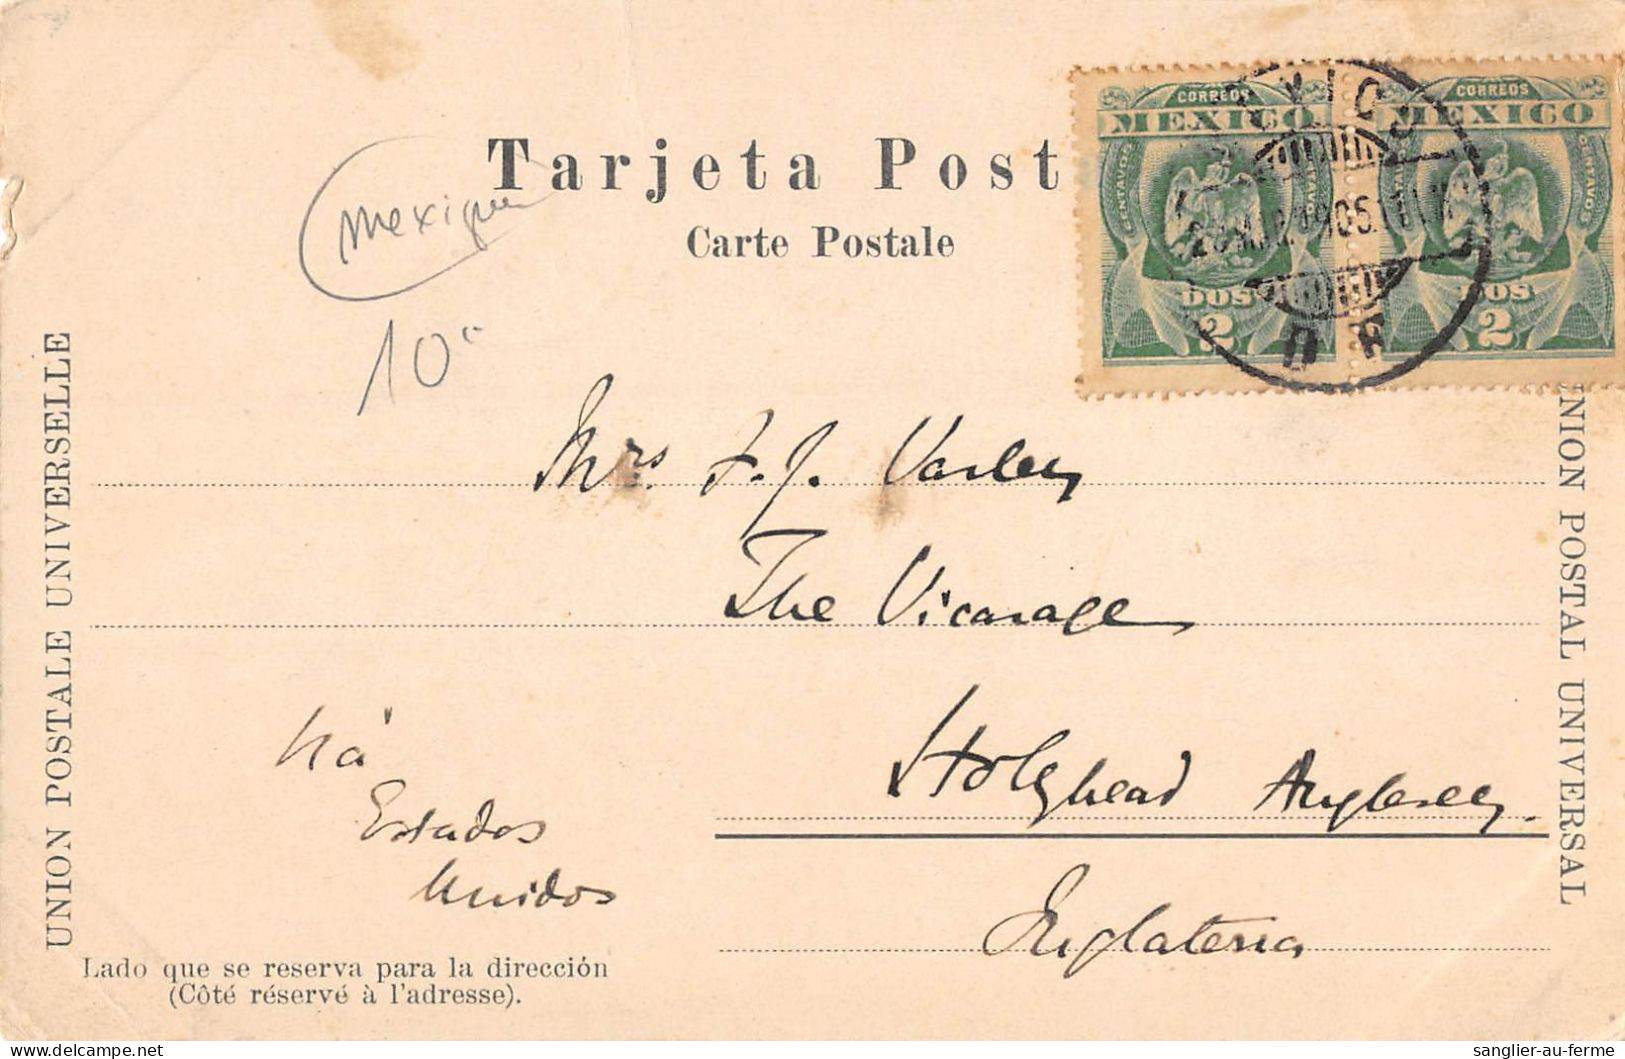 Tarjeta Post
Carte Postale
Mexique
10
CORREOS
MEXICO
CENTAVOS
CENTAVOS
DOS
2
CORREOS
MEXICO
CENTAVOS
CENTAVOS
DOS
2
D F
UNION POSTALE UNIVERSELLE
UNION POSTAL UNIVERSAL
Mrs F. J. Varley
The Vicarage
Holyhead Anglesey.
Inglaterra
Viá
Estados
Unidos
Lado que se reserva para la dirección
(Côté réservé à l'adresse).
sanglier-au-ferme